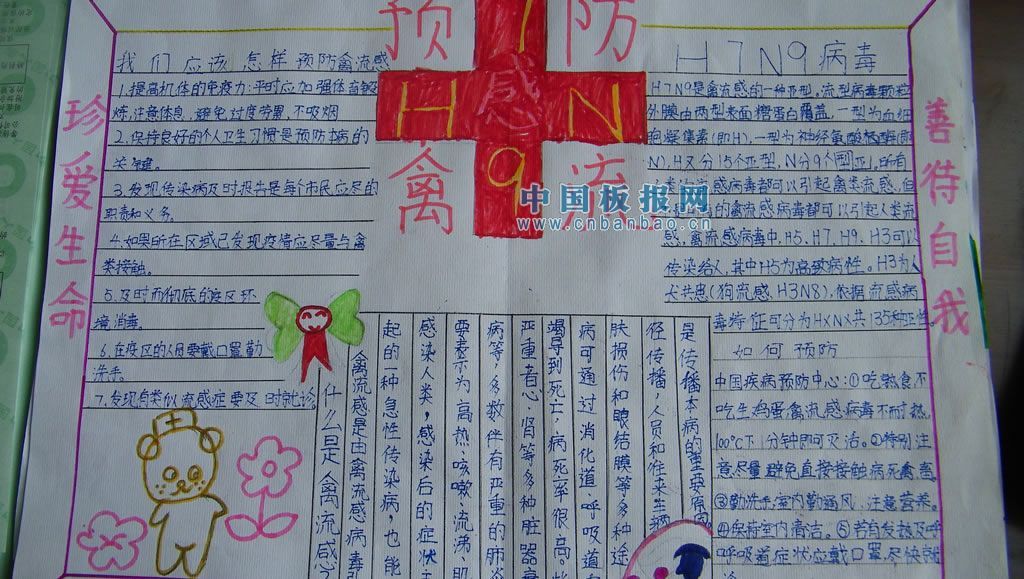 预防
禽流感
H7N9
珍爱生命
善待自我
我们应该怎样预防禽流感
1.提高机体的免疫力:平时应加强体育锻
炼,注意休息,避免过度劳累,不吸烟
2.保持良好的个人卫生习惯是预防本病的
关键。
3.发现传染病及时报告是每个市民应尽的
职责和义务。
4.如果所在区域已发现疫情应尽量与禽
类接触。
5.及时而彻底的疫区环
境消毒。
6.在疫区的人员要戴口罩勤
洗手。
7.发现自类似流感症要及时就诊。
什么是禽流感
禽流感是由禽流感病毒引
起的一种急性传染病,也能
感染人类,感染后的症状
要表示为高热、咳嗽、流涕、肌
病等,多数伴有严重的肺炎
严重者心、肾等多种脏器衰
竭导到死亡,病死率很高。
病可通过消化道、呼吸道
肤损伤和眼结膜等多种途
径传播,人员和住来车辆
是传播本病的重要原因
H7N9病毒
H7N9是禽流感的一种亚型。流型病毒颗粒
外膜由两型表面糖蛋白覆盖,一型为血细
胞凝集素(即H),一型为神经氨酸糖酶(即
N),H又分15个亚型,N分9个型亚,所有
感病毒都可以引起禽类流感,但
的禽流感病毒都可以引起人类流
感,禽流感病毒中,H5、H7、H9、H3可以
传染给人,其中H5为高致病性。H3为人
犬共患(狗流感,H3N8),依据流感病
毒特征可分为HXNX共135种亚性。
如何预防
中国疾病预防中心:①吃熟食不
吃生鸡蛋禽流感病毒不耐热
100℃下1分钟即可灭活。②特别注
意尽量避免直接接触病死禽畜
③勤洗手,室内勤通风,注意营养。
④保持室内清洁。⑤若有发热及呼
呼吸道症状应戴口罩尽快就
诊
中国板报网
www.cnbanbao.cn